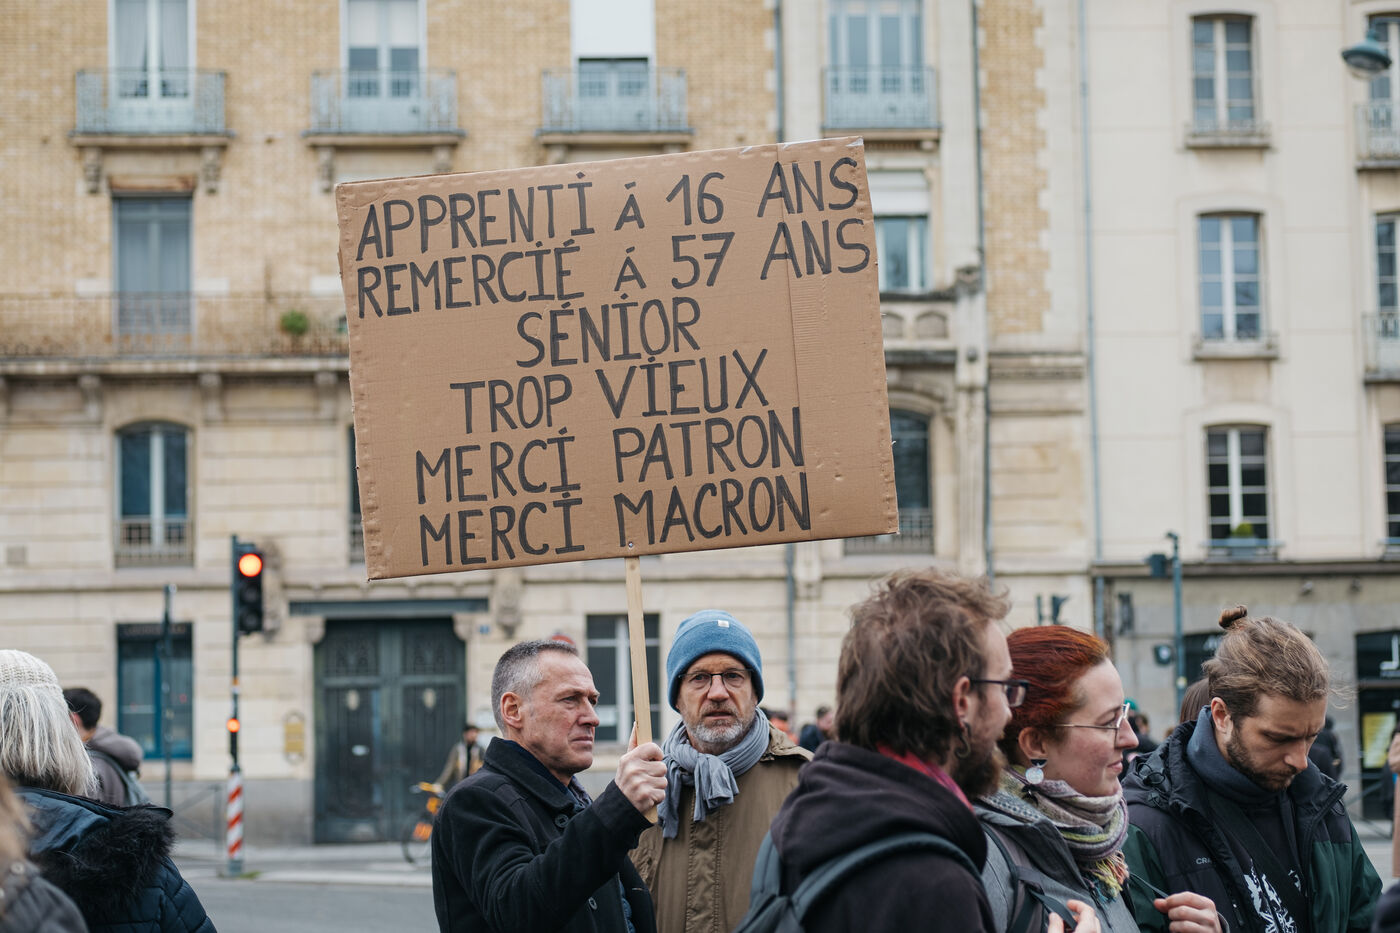 APPRENTI Á 16 ANS
REMERCIÉ Á 57 ANS
SÉNIOR
TROP VIEUX
MERCI PATRON
MERCI MACRON